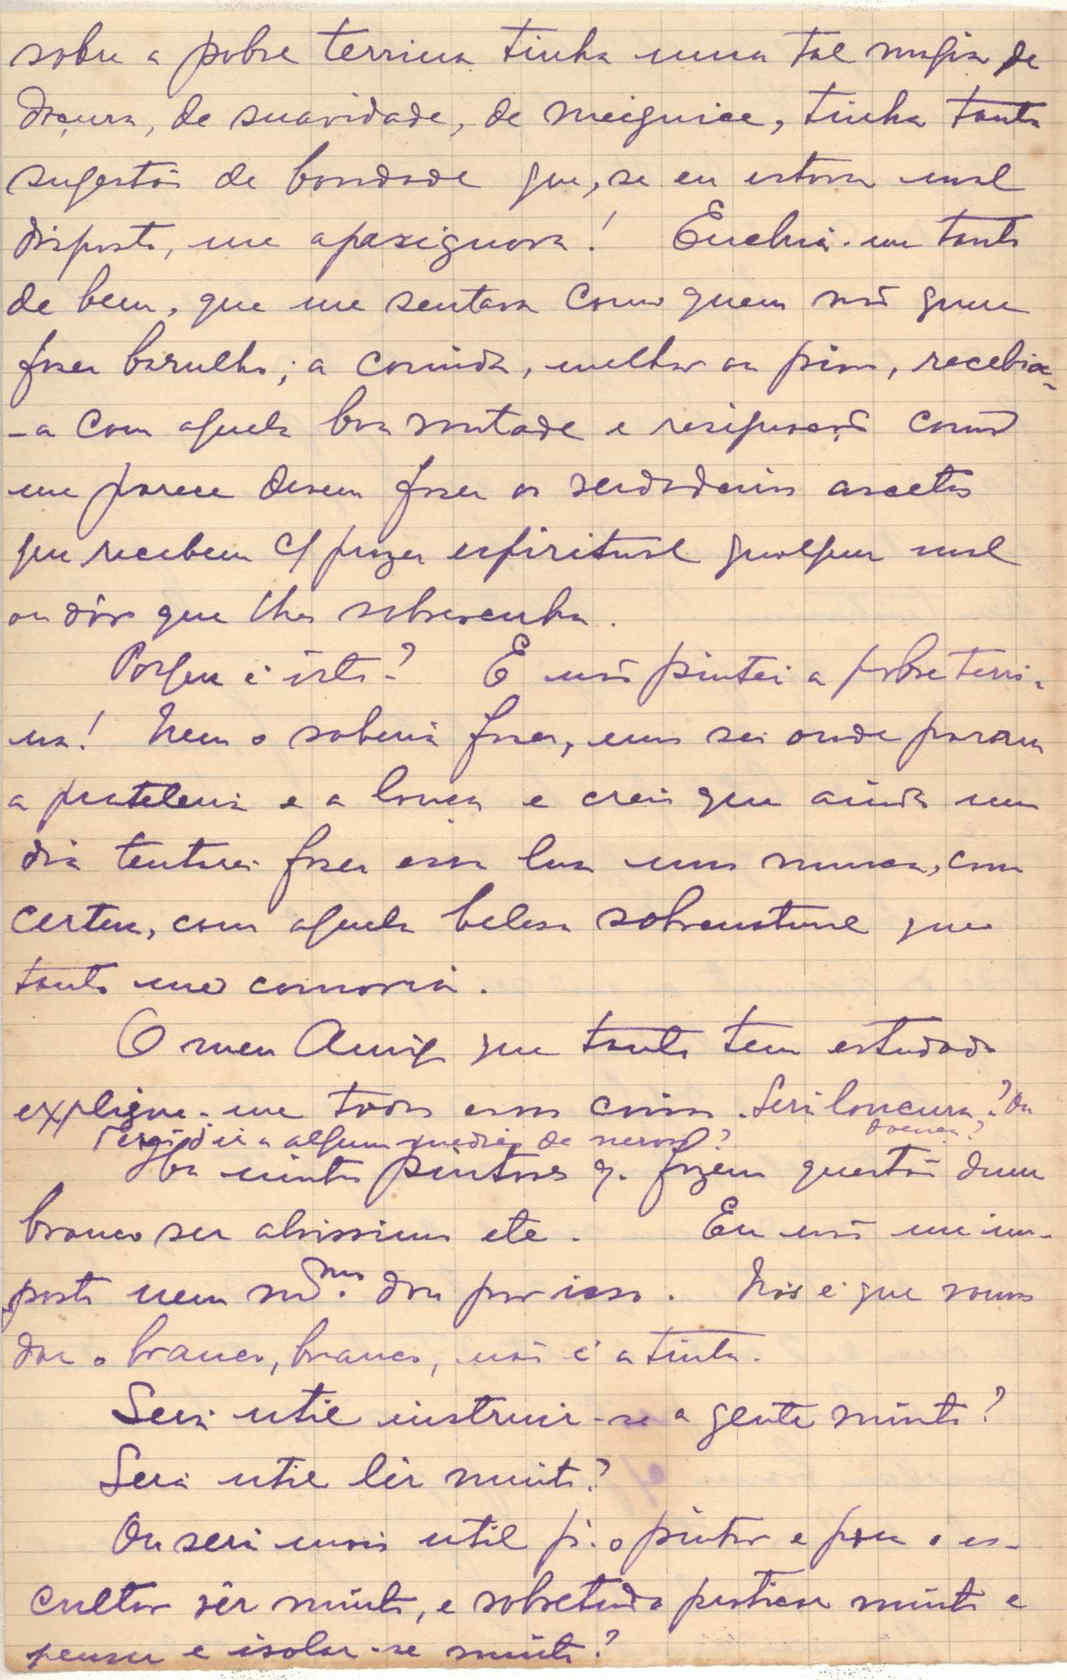 sobre a pobre terrina tinha uma tal magia de
doçura, de suavidade, de meiguice, tinha tanta
sugestão de bondade que, se eu estava mal
disposto, me apasiguava! Enchia-me tanto
de bem, que me sentava como quem não quere
fazer barulho; a comida, melhor ou pior, recebia-
-a com aquela boa vontade e resignação como
me parece devem fazer os verdadeiros ascetas
que recebem c/ prazer espiritual qualquer mal
ou dôr que lhes sobrevenha.
Porque é isto? E não pintei a pobre terri-
na! Nem o saberia fazer, nem sei onde param
a prateleira e a louça e creio que ainda um
dia tentarei fazer essa luz mas nunca, com
certeza, com aquela beleza sobrenatural que
tanto me comovia.
O meu Amigo que tanto tem estudado
explique-me todas essas coisas. Será loucura? Ou
doença?
a algum de nervos?
Ha muitos pintores q. fazem questão dum
branco ser alvissimo etc. Eu não me im-
porto nem me dou por isso. Nós é que vamos
dar o branco, branco, não é a tinta.
Será util instruir-se a gente muito?
Será util lêr muito?
Ou será mais util p.ª o pintor e para o es-
cultor vêr muito, e sobretudo praticar muito e
pensar e isolar-se muito?